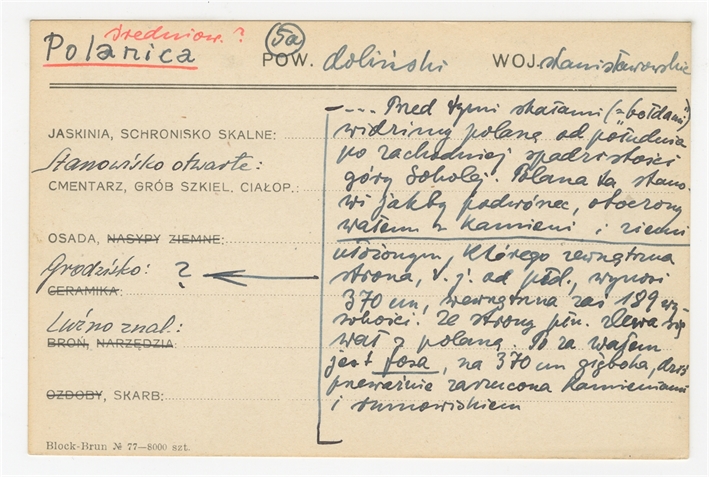 średniow. ?
Polanica
5a
POW. doliński WOJ. stanisławowskie
JASKINIA, SCHRONISKO SKALNE:
Stanowisko otwarte:
CMENTARZ, GRÓB SZKIEL. CIAŁOP.:
OSADA, NASYPY ZIEMNE:
Grodzisko: ?
CERAMIKA:
Luźno znal.:
BROŃ, NARZĘDZIA:
OZDOBY, SKARB:
Block-Brun № 77—8000 szt.
—... Przed tymi skałami (= "bołdami")
widzimy polanę od południa
po zachodniej spadzistości
góry Sokolej. Polana ta stano-
wi jakby podwórzec, otoczony
wałem z kamieni i ziemi
ułożonym, którego zewnętrzna
strona, t. j. od płd., wynosi
370 cm, wewnętrzna zaś 189 wy-
sokości. Ze strony płn. zlewa się
wał z polaną. Po za wałem
jest fosa, na 370 cm głęboka, dziś
przeważnie zarzucona kamieniami
i rumowiskiem